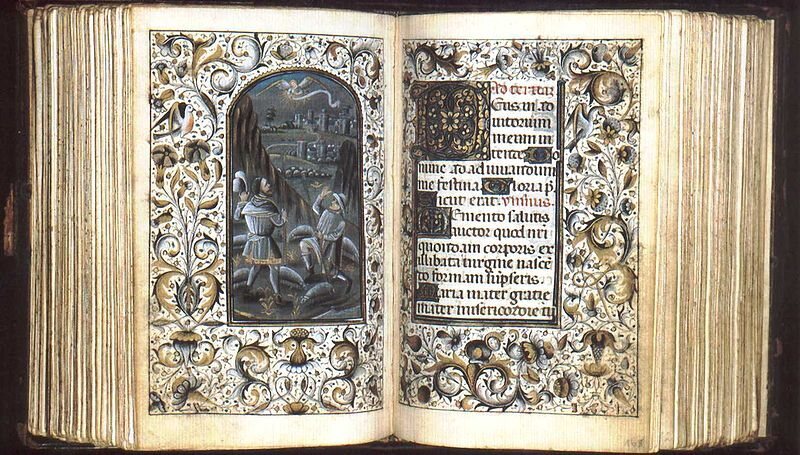 Ad tertiā
Deus in ad
iutorium
meum in
tende Do
mine ad adiuuandum
me festina Gloria p
Sicut erat. ymnus.
Memento salutis
auctor quod nri
quondam corporis ex
illibata uirgine nascē
do formam sūpseris
Maria mater gratie
mater misericordie tu